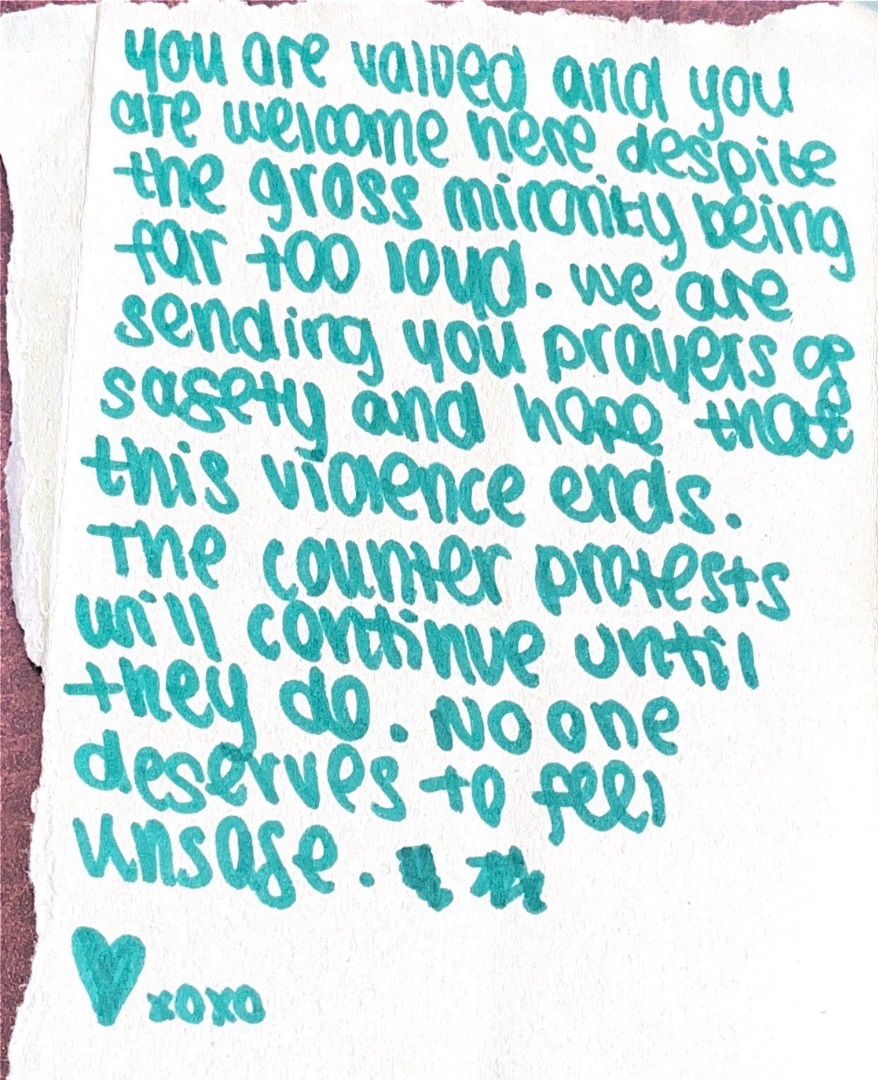 you are valued and you
are welcome here despite
the gross minority being
far too loud. we are
sending you prayers of
safety and hope that
this violence ends.
The counter protests
will continue until
they do. No one
deserves to feel
unsafe.
xoxo